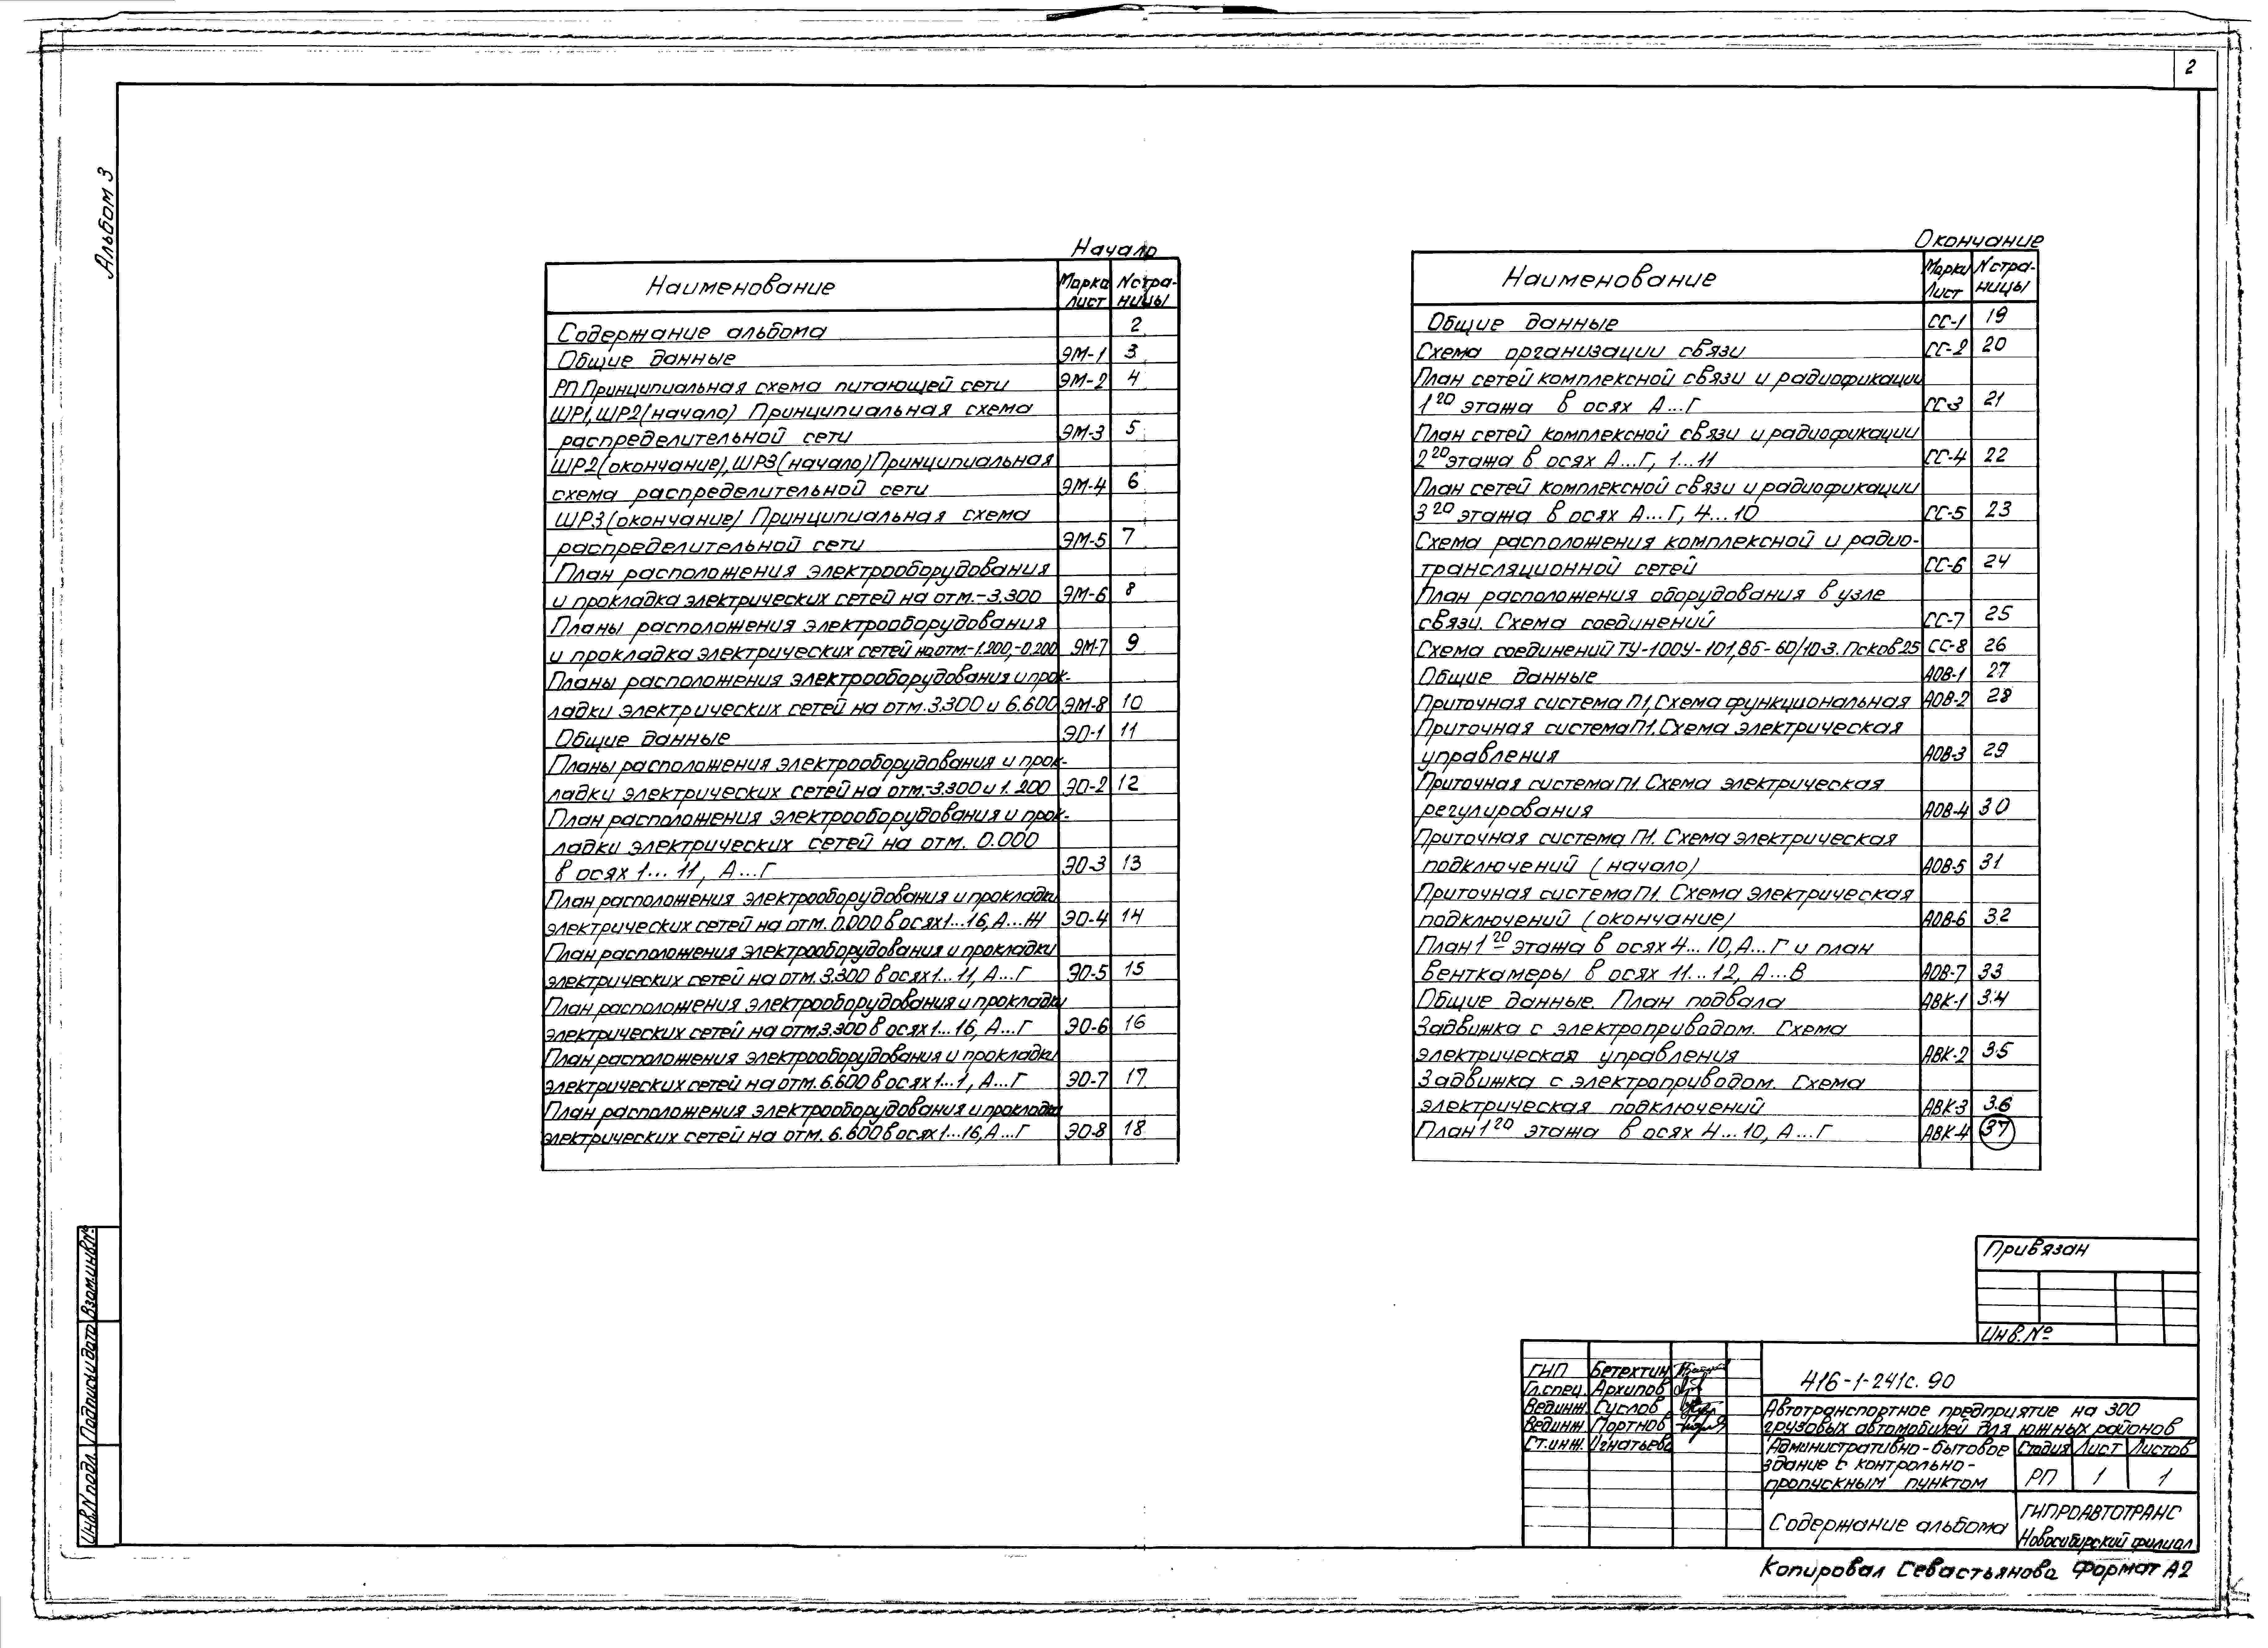 2
Альбом 3
Начало
Наименование Марка Лист N страницы
Содержание альбома 2
Общие данные ЭМ-1 3
РП Принципиальная схема питающей сети ЭМ-2 4
ШР1, ШР2 (начало) Принципиальная схема
распределительной сети ЭМ-3 5
ШР2 (окончание), ШР3 (начало) Принципиальная
схема распределительной сети ЭМ-4 6
ШР3 (окончание) Принципиальная схема
распределительной сети ЭМ-5 7
План расположения электрооборудования
и прокладка электрических сетей на отм. -3.300 ЭМ-6 8
Планы расположения электрооборудования
и прокладка электрических сетей на отм. -1.200, -0.200 ЭМ-7 9
Планы расположения электрооборудования и прок-
ладки электрических сетей на отм. 3.300 и 6.600 ЭМ-8 10
Общие данные ЭО-1 11
Планы расположения электрооборудования и прок-
ладки электрических сетей на отм. -3.300 и 1.200 ЭО-2 12
План расположения электрооборудования и прок-
ладки электрических сетей на отм. 0.000
в осях 1...11, А...Г ЭО-3 13
План расположения электрооборудования и прокладки
электрических сетей на отм. 0.000 в осях 1...16, А...Ж ЭО-4 14
План расположения электрооборудования и прокладки
электрических сетей на отм. 3.300 в осях 1...11, А...Г ЭО-5 15
План расположения электрооборудования и прокладки
электрических сетей на отм. 3.300 в осях 1...16, А...Г ЭО-6 16
План расположения электрооборудования и прокладки
электрических сетей на отм. 6.600 в осях 1...1, А...Г ЭО-7 17
План расположения электрооборудования и прокладки
электрических сетей на отм. 6.600 в осях 1...16, А...Г ЭО-8 18
Окончание
Наименование Марка Лист N страницы
Общие данные СС-1 19
Схема организации связи СС-2 20
План сетей комплексной связи и радиофикации
1го этажа в осях А...Г СС-3 21
План сетей комплексной связи и радиофикации
2го этажа в осях А...Г, 1...11 СС-4 22
План сетей комплексной связи и радиофикации
3го этажа в осях А...Г, 4...10 СС-5 23
Схема расположения комплексной и радио-
трансляционной сетей СС-6 24
План расположения оборудования в узле
связи. Схема соединений СС-7 25
Схема соединений ТУ-100У-101, ВБ-60/10-3. Псков 25 СС-8 26
Общие данные АОВ-1 27
Приточная система П1, Схема функциональная АОВ-2 28
Приточная система П1. Схема электрическая
управления АОВ-3 29
Приточная система П1. Схема электрическая
регулирования АОВ-4 30
Приточная система П1. Схема электрическая
подключений (начало) АОВ-5 31
Приточная система П1. Схема электрическая
подключений (окончание) АОВ-6 32
План 1го этажа в осях 4...10, А...Г и план
венткамеры в осях 11...12, А...В АОВ-7 33
Общие данные. План подвала АВК-1 34
Задвижка с электроприводом. Схема
электрическая управления АВК-2 35
Задвижка с электроприводом. Схема
электрическая подключений АВК-3 36
План 1го этажа в осях 4...10, А...Г АВК-4 37
Привязан
Инв. №
ГИП Бетехтин
Гл.спец. Архипов
Вед.инж. Суслов
Вед.инж Портнов
Ст.инж. Игнатьева
416-1-241с.90
Автотранспортное предприятие на 300
грузовых автомобилей для южных районов
Административно-бытовое
здание с контрольно-
пропускным пунктом
Стадия Лист Листов
РП 1 1
Содержание альбома
ГИПРОАВТОТРАНС
Новосибирский филиал
Копировал Севастьянова Формат А2
Инв.N подл. Подпись и дата Взам.инв.№